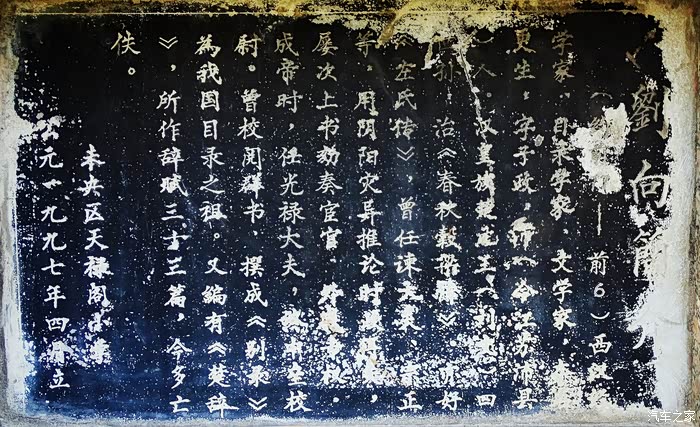 劉向簡
——前6）西汉
学家、目录学家、文学家，
更生，字子政，沛（今江苏沛县
）人。汉皇族楚元王（刘交）四
孙。治《春秋穀梁》，亦好
《左氏传》，曾任谏大夫、宗正
等。用阴阳灾异推论时政得失，
屡次上书劾奏宦官、外戚专权。
成帝时，任光禄大夫，垒校
尉。曾校阅群书，撰成《别录》
為我国目录之祖。又编有《楚辞
》，所作辞赋三十三篇，今多亡
佚。
未央区天禄阁小学
公元一九九七年四月立
汽车之家